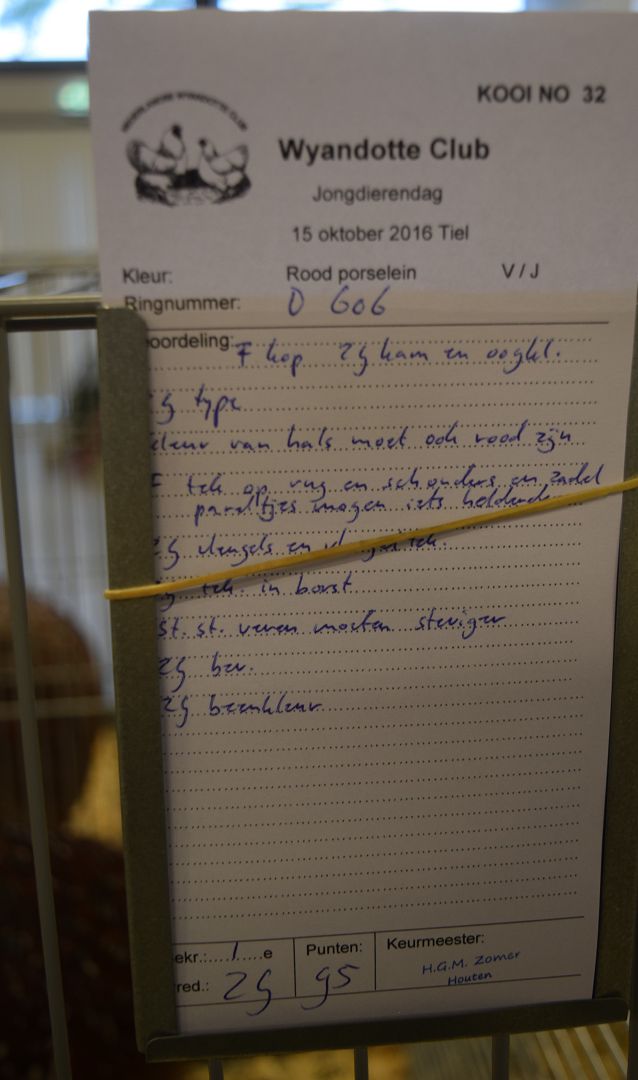 KOOI NO 32
NEDERLANDSE WYANDOTTE CLUB
Wyandotte Club
Jongdierendag
15 oktober 2016 Tiel
Kleur: Rood porselein V / J
Ringnummer: D 606
oordeling: F kop 2G kam en oogkl.
G type
kleur van hals moet ook rood zijn
F tek op rug en schouders en zadel
pareltjes mogen iets
ZG vleugels en
tek. in borst
St. st. veren moeten steviger
ZG bev.
ZG beenkleur
ekr.: 1 e Punten: Keurmeester:
red.: ZG 95 H.G.M. Zomer
Houten